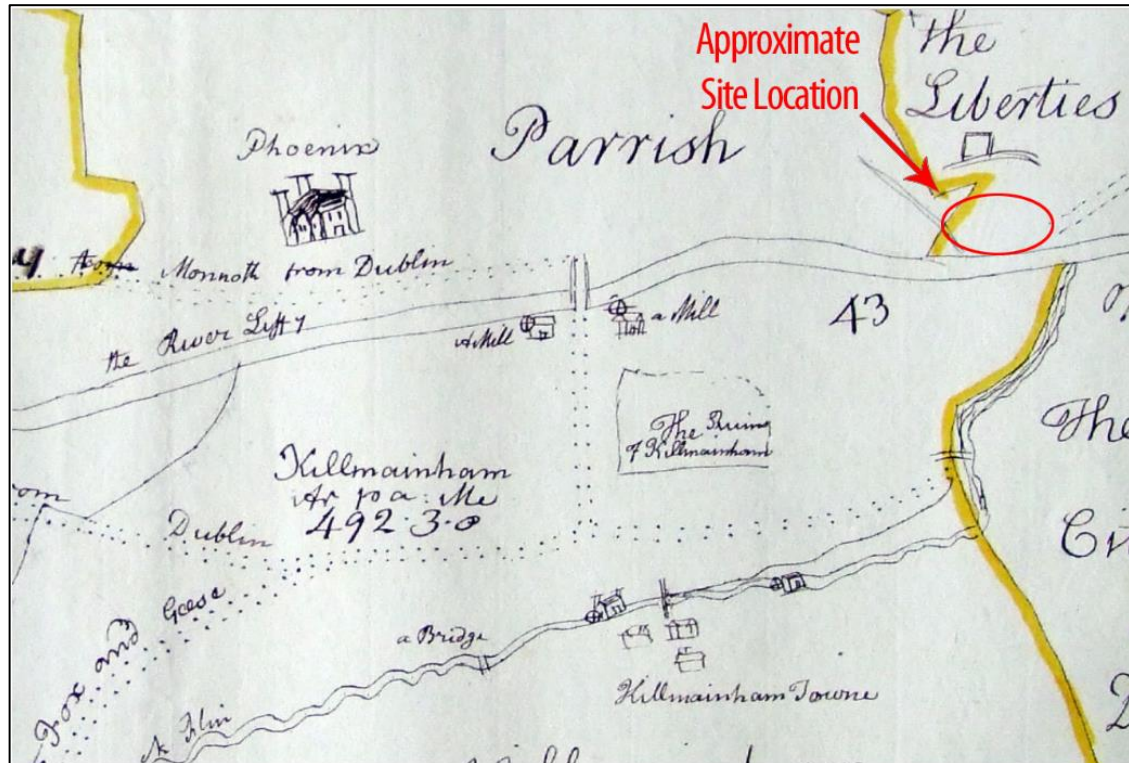 Approximate
Site Location
the
Liberties
Phoenix
Parrish
Monnoth from Dublin
the River Liffy
A Mill
a Mill
43
The Ruins
of Killmainham
The
Killmainham
492.3.0
Dublin
Fox and Geese
a Bridge
Killmainham Towne